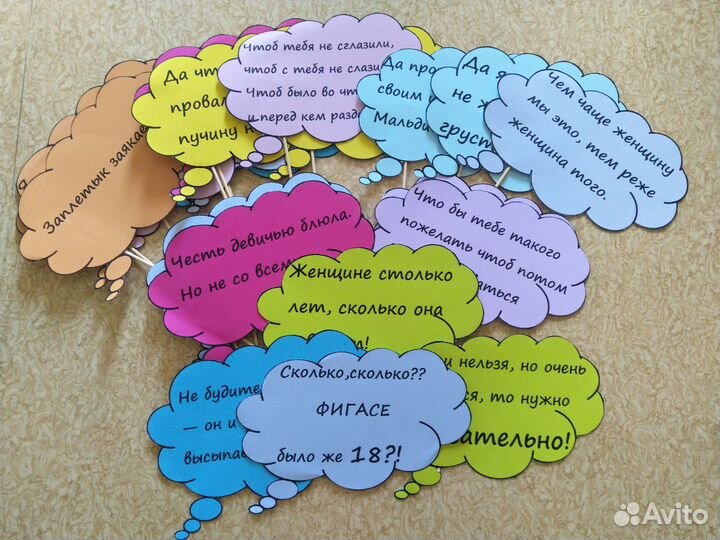 Заплетык заякае
Да что
провал
пучину н
Чтоб тебя не сглазили,
чтоб с тебя не слази
Чтоб было во чт
и перед кем разд
Да про
своим
Мальди
Да я
не ж
груст
Чем чаще женщину
мы это, тем реже
женщина того.
Честь девичью блюла.
Но не со всем
Что бы тебе такого
пожелать чтоб потом
аться
Женщине столько
лет, сколько она
!
Не будите
– он и
высыпае
Сколько,сколько??
ФИГАСЕ
было же 18?!
и нельзя, но очень
ся, то нужно
ательно!
Avito